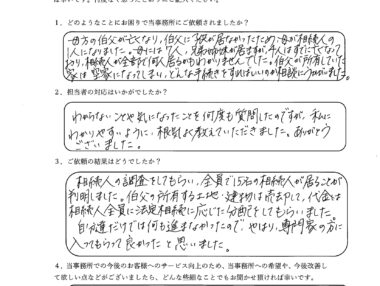 1. どのようなことにお困りで当事務所にご依頼されましたか?
母方の伯父が亡くなり、伯父に子供が居なかったため、母が相続人の
1人になりました。母には7人、兄弟姉妹が居ますが、4人はすでに亡くなって
おり、相続人が全部で何人居るかもわかりませんでした。伯父が所有していた
家は空家になってしまい、どんな手続きをすればいいのか相談にうかがいました。
2. 担当者の対応はいかがでしたか?
わからないことや気になったことを何度も質問したのですが、私に
わかりやすいように、根気よく教えていただきました。ありがとう
ございました。
3. ご依頼の結果はどうでしたか?
相続人の調査をしてもらい、全員で15名の相続人が居ることが
判明しました。伯父の所有する土地・建物は売却して、代金は
相続人全員に法定相続に応じた分配をしてもらいました。
自分達だけでは何も進まなかったので、やはり、専門家の方に
入ってもらって良かったと思いました。
4. 当事務所での今後のお客様へのサービス向上のため、当事務所への希望や、今後改善し
て欲しい点などがございましたら、どんな些細なことでもお聞かせ頂ければ幸いです。